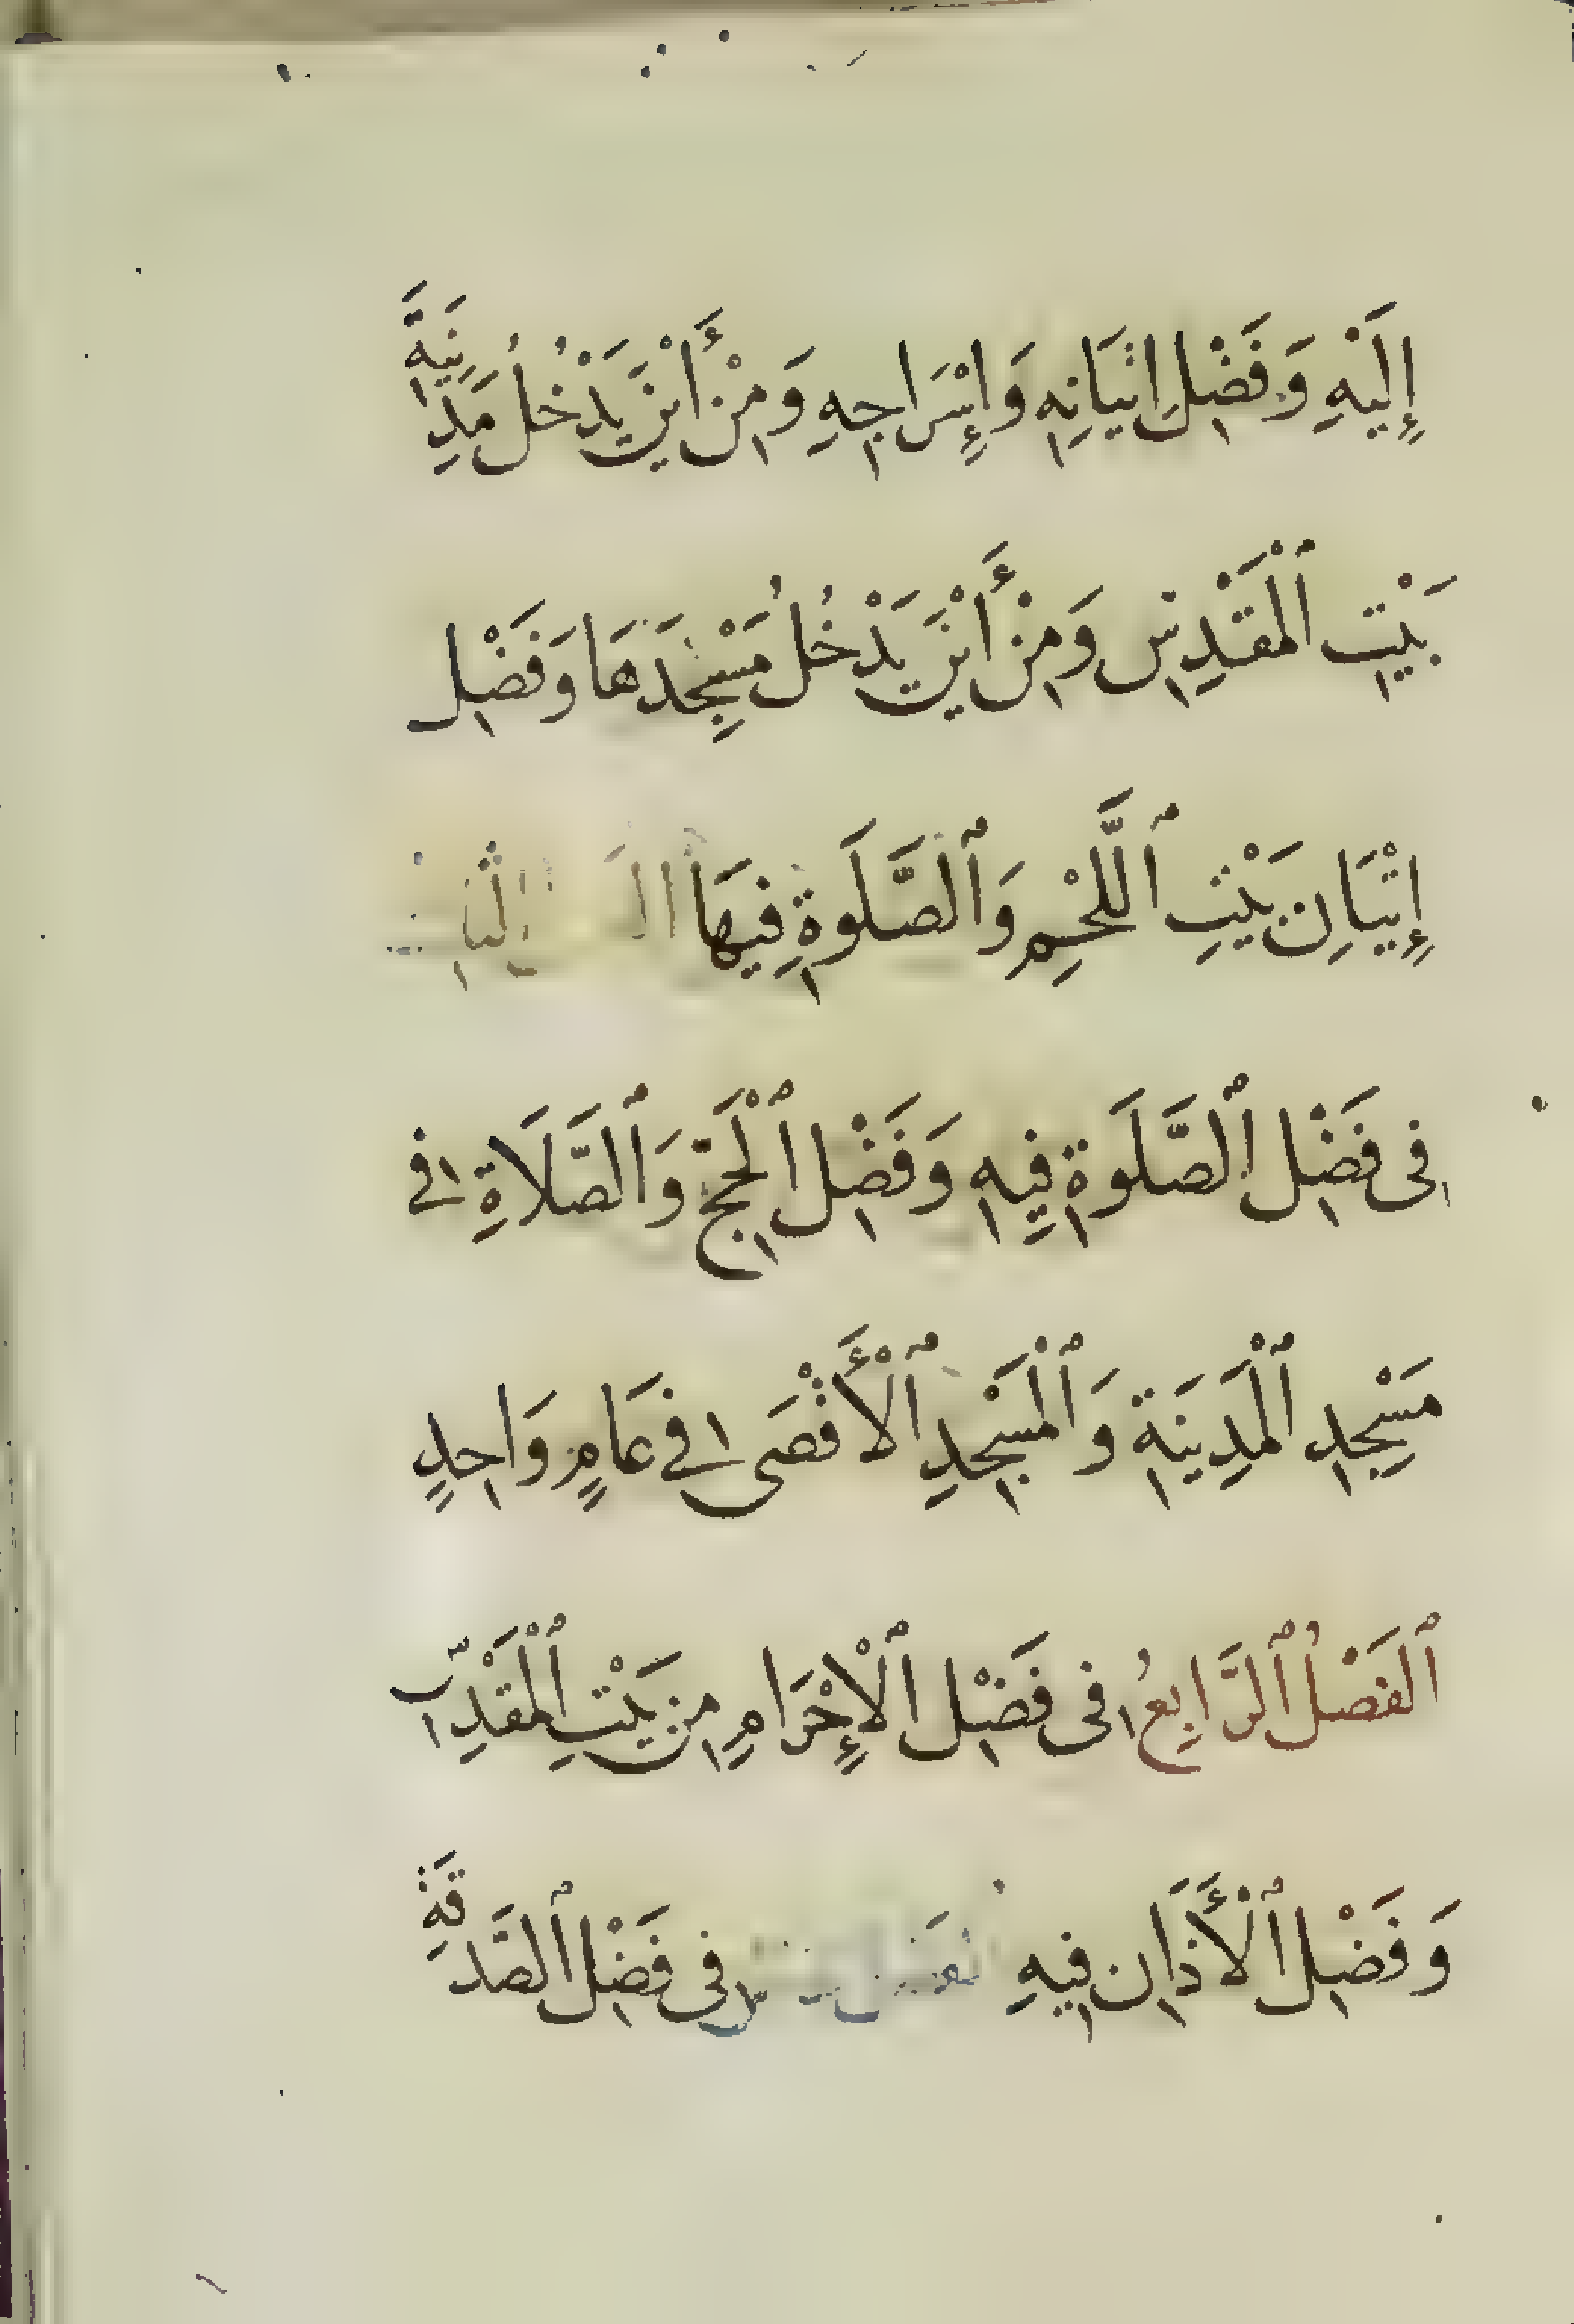 إِلَيْهِ وَفَضْلِ اِتْيَانِهِ وَإِسْرَاجِهِ وَمِنْ أَيْنَ يَدْخُلُ مَدِينَةَ
بَيْتِ ٱلْمَقْدِسِ وَمِنْ أَيْنَ يَدْخُلُ مَسْجِدَهَا وَفَضْلِ
إِتْيَانِ بَيْتِ ٱللَّحْمِ وَٱلصَّلَوةِ فِيهَا
فِى فَضْلِ ٱلصَّلَوةِ فِيهِ وَفَضْلِ ٱلْحَجِّ وَٱلصَّلَاةِ فِى
مَسْجِدِ ٱلْمَدِينَةِ وَٱلْمَسْجِدِ ٱلْأَقْصَى فِى عَامٍ وَاحِدٍ
ٱلْفَصْلُ ٱلرَّابِعُ فِى فَضْلِ ٱلْإِحْرَامِ مِنْ بَيْتِ ٱلْمَقْدِسِ
وَفَضْلِ ٱلْأَذَانِ فِيهِ فِى فَضْلِ ٱلصَّدَقَةِ